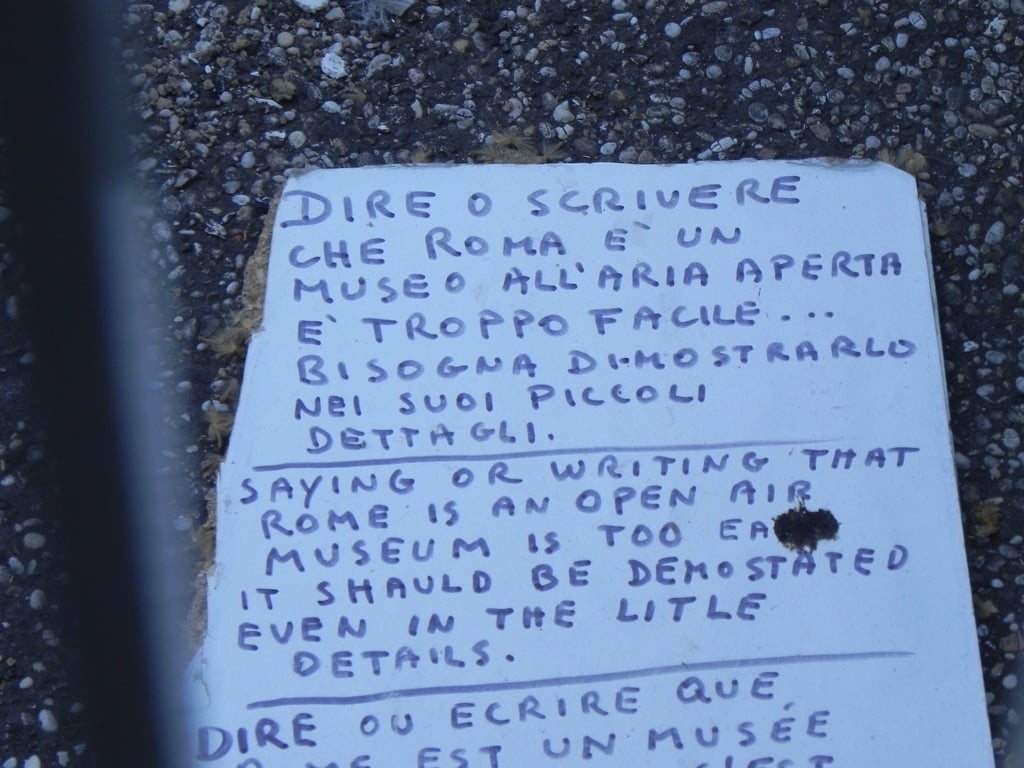 DIRE O SCRIVERE
CHE ROMA E' UN
MUSEO ALL'ARIA APERTA
E' TROPPO FACILE...
BISOGNA DIMOSTRARLO
NEI SUOI PICCOLI
DETTAGLI.
SAYING OR WRITING THAT
ROME IS AN OPEN AIR
MUSEUM IS TOO
IT SHAULD BE DEMOSTATED
EVEN IN THE LITLE
DETAILS.
DIRE OU ECRIRE QUE
EST UN MUSÉE